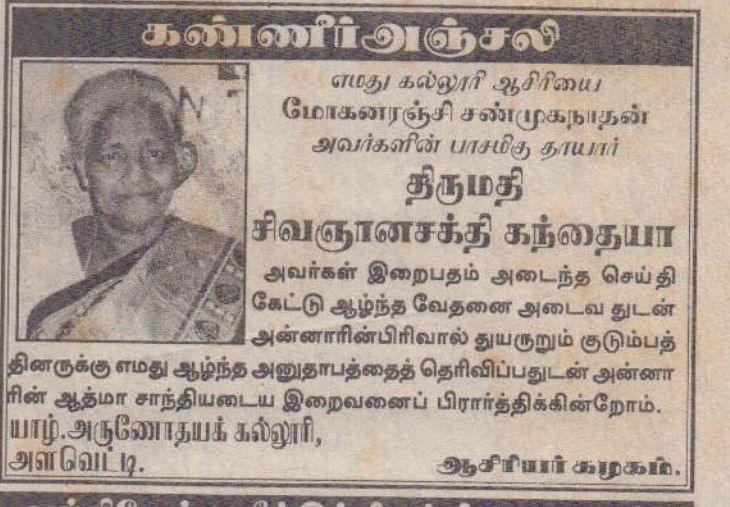 கண்ணீர்அஞ்சலி
எமது கல்லூரி ஆசிரியை
மோகனரஞ்சி சண்முகநாதன்
அவர்களின் பாசமிகு தாயார்
திருமதி
சிவஞானசக்தி கந்தையா
அவர்கள் இறைபதம் அடைந்த செய்தி
கேட்டு ஆழ்ந்த வேதனை அடைவ துடன்
அன்னாரின்பிரிவால் துயருறும் குடும்பத்
தினருக்கு எமது ஆழ்ந்த அனுதாபத்தைத் தெரிவிப்பதுடன் அன்னா
ரின் ஆத்மா சாந்தியடைய இறைவனைப் பிரார்த்திக்கின்றோம்.
யாழ்.அருணோதயக் கல்லூரி,
அளவெட்டி.
ஆசிரியர் கழகம்.